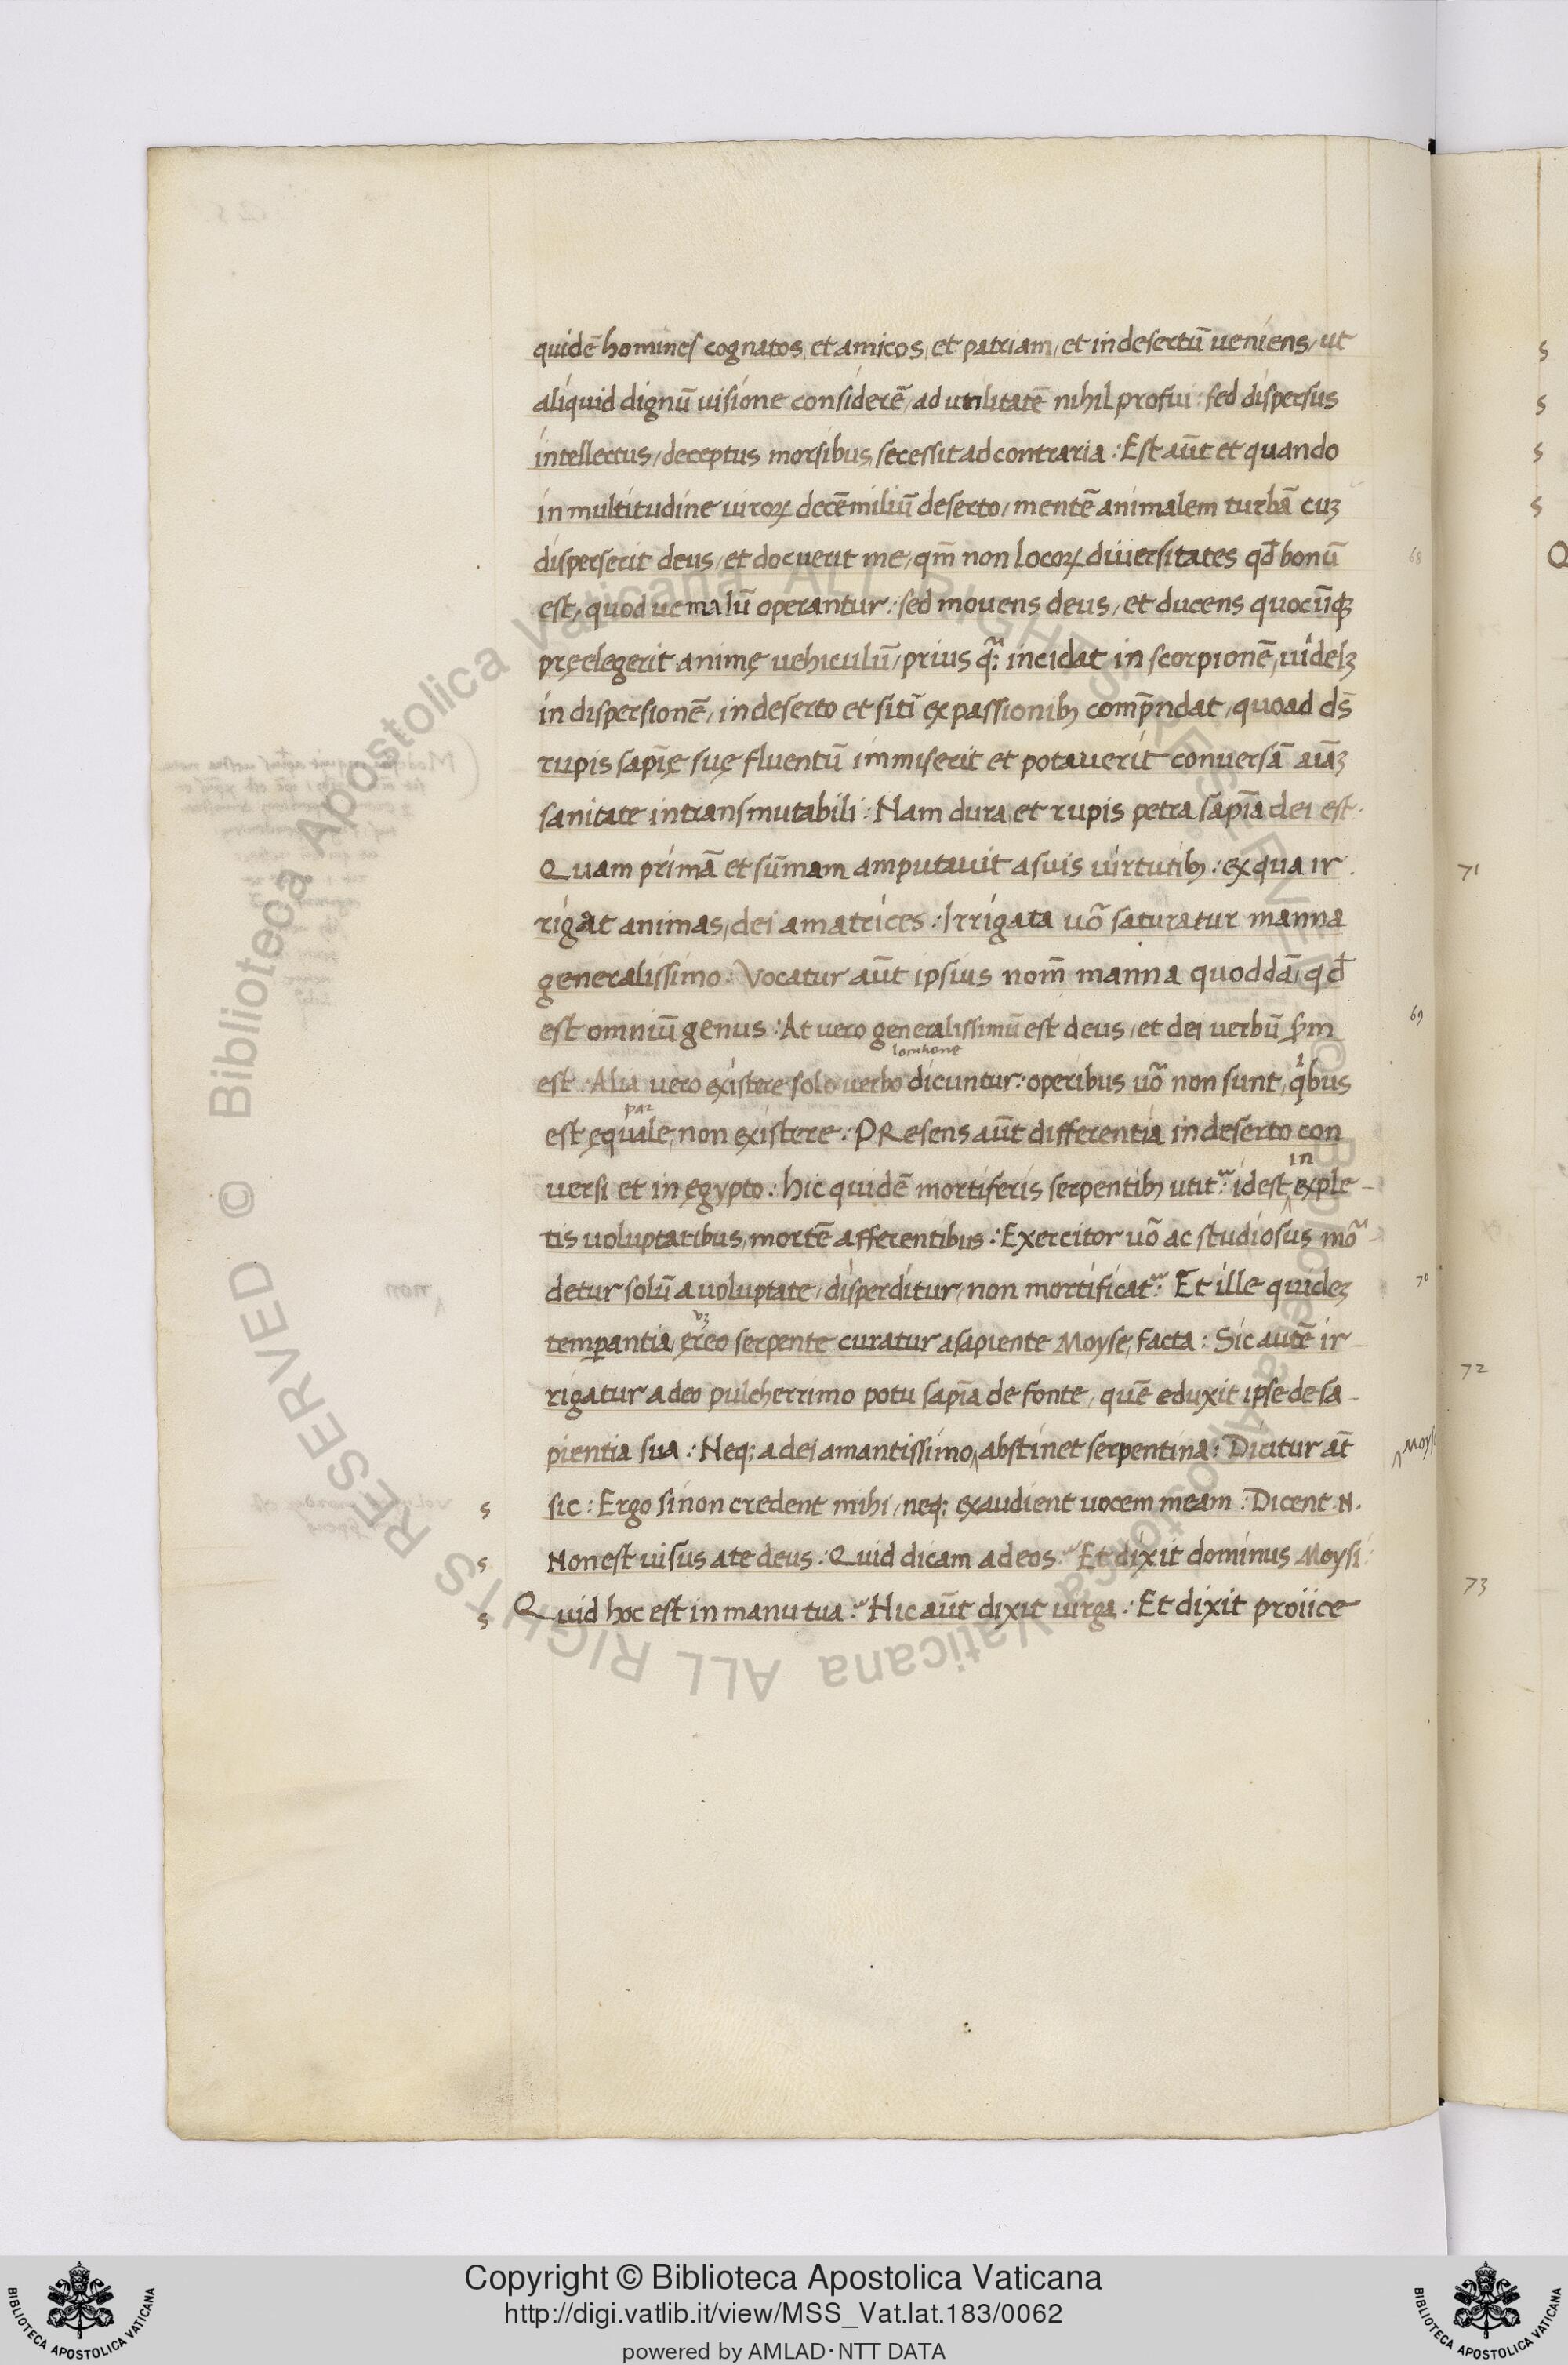 quidē homines cognatos, et amicos, et patriam, et in desertū veniens, ut
aliquid dignū visione considerē, ad utilitatē nihil profui: sed dispersus
intellectus, deceptus morsibus, secessit ad contraria: Est aūt et quando
in multitudine uiroꝝ decē miliū deserto, mentē animalem turbā cuꝫ
disperserit deus, et docuerit me, qm̄ non locoꝝ diuersitates qđ bonū
est, quod ue malū operantur: sed mouens deus, et ducens quocūꝙ
pręelegerit animę uehiculū, prius qᷓ: incidat in scorpionē, uidelꝫ
in dispersionē, in deserto et siti ex passionibꝫ comp̄ndat, quoad ds̄
rupis sapīę suę fluentū immiserit et potauerit conuersā aīaꝫ
sanitate intransmutabili: Nam dura et rupis petra sapīa dei est.
Quam primā et sūmam amputauit a suis uirtutibꝫ: ex qua ir
rigat animas, dei amatrices: Irrigata uō saturatur manna
generalissimo: Vocatur aūt ipsius nom̄ manna quoddā, qđ
est omniū genus: At uero generalissimū est deus, et dei uerbū ꝓm
locutione
est: Alia uero existere solo uerbo dicuntur: operibus uō non sunt, qibus
par
est ęquale, non existere: PResens aūt differentia in deserto con
in
uersi et in ęgypto: hic quidē mortiferis serpentibꝫ utit᷑: idest exple-
tis uoluptatibus, mortē afferentibus: Exercitor uō ac studiosus mō
detur solū a uoluptate, disperditur, non mortificat᷑: Et ille quideꝫ
temꝑantia, ęreo serpente curatur a sapiente Moyse, facta: Sic autē ir-
rigatur a deo pulcherrimo potu sapīa de fonte, quē eduxit ipse de sa-
pientia sua: Neq; a dei amantissimo, abstinet serpentina: Dicitur āt
Moyse
s sic: Ergo si non credent mihi, neq; exaudient uocem meam: Dicent .N.
s Non est uisus a te deus: Quid dicam ad eos: Et dixit dominus Moysi:
s Quid hoc est in manu tua: Hic aūt dixit uirga: Et dixit proiice
68
69
70
71
72
73
s
s
s
s
Q
non
Copyright © Biblioteca Apostolica Vaticana
http://digi.vatlib.it/view/MSS_Vat.lat.183/0062
powered by AMLAD·NTT DATA
BIBLIOTECA APOSTOLICA VATICANA
BIBLIOTECA APOSTOLICA VATICANA
© Biblioteca Apostolica Vaticana ALL RIGHTS RESERVED
© Biblioteca Apostolica Vaticana ALL RIGHTS RESERVED